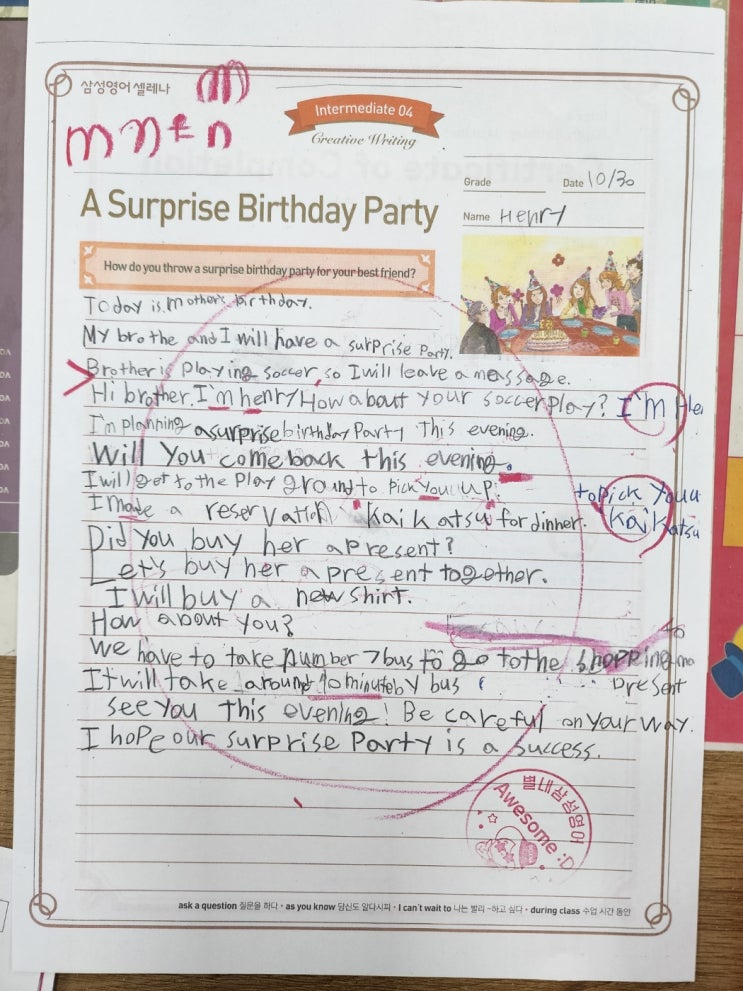 삼성영어 셀레나
m
m n t n
Intermediate 04
Creative Writing
Grade
Date 10/30
A Surprise Birthday Party
Name Henry
How do you throw a surprise birthday party for your best friend?
Today is mother's birthday.
My brothe and I will have a surprise Party.
Brother is playing soccer, so I will leave a message.
Hi brother. I'm henry How about your soccer play? I'M Her
I'm planning a surprise birthday Party This evening.
Will You come back this evening.
I will get to the Play ground to pick you up. to Pick you u
I made a reservation Kai Katsu for dinner. Kai Katsu
Did you buy her a present?
Let's buy her a present together.
I will buy a new shirt.
How about You?
We have to take number 7 bus to go to the shopping ma
It will take around 10 minute by bus present
see you This evening. Be careful on your way.
I hope our surprise Party is a success.
별내삼성영어
Awesome :D
ask a question 질문을 하다 • as you know 당신도 알다시피 • I can't wait to 나는 빨리 ~하고 싶다 • during class 수업 시간 동안